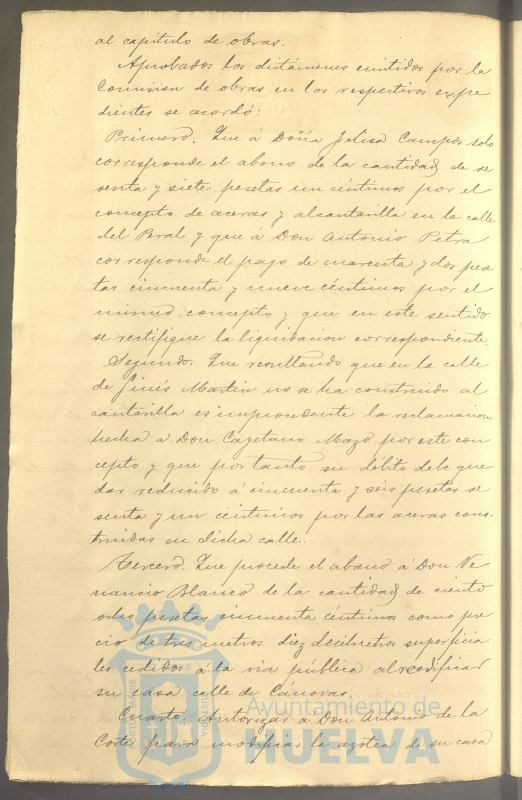 al capitulo de obras.
Aprobados los dictámenes emitidos por la
Comision de obras en los respectivos expe
dientes se acordó:
Primero. Que á Doña Felisa Campos solo
corresponde el abono de la cantidad de se
senta y siete pesetas un céntimos por el
concepto de aceras y alcantarilla en la calle
del Peral y que á Don Antonio Petra
corresponde el pago de cuarenta y dos pese
tas cincuenta y nueve céntimos por el
mismo concepto y que en este sentido
se rectifique la liquidacion correspondiente.
Segundo. Que resultando que en la calle
de Ginés Martin no se ha construido al
cantarilla es improcedente la reclamacion
hecha á Don Cayetano Mazo por este con
cepto y que por tanto su débito debe que
dar reducido á cincuenta y seis pesetas se
senta y un céntimos por las aceras cons-
truidas en dicha calle.
Tercero. Que procede el abono á Don Ve
nancio Blanco de la cantidad de ciento
ocho pesetas cincuenta céntimos como pre
cio de tres metros diez decimetros superficia
les cedidos á la via pública al reedificar
su casa calle de Cánovas.
Cuarto. Autorizar á Don Antonio de la
Corte para modificar la azotea de su casa
Ayuntamiento de
HUELVA